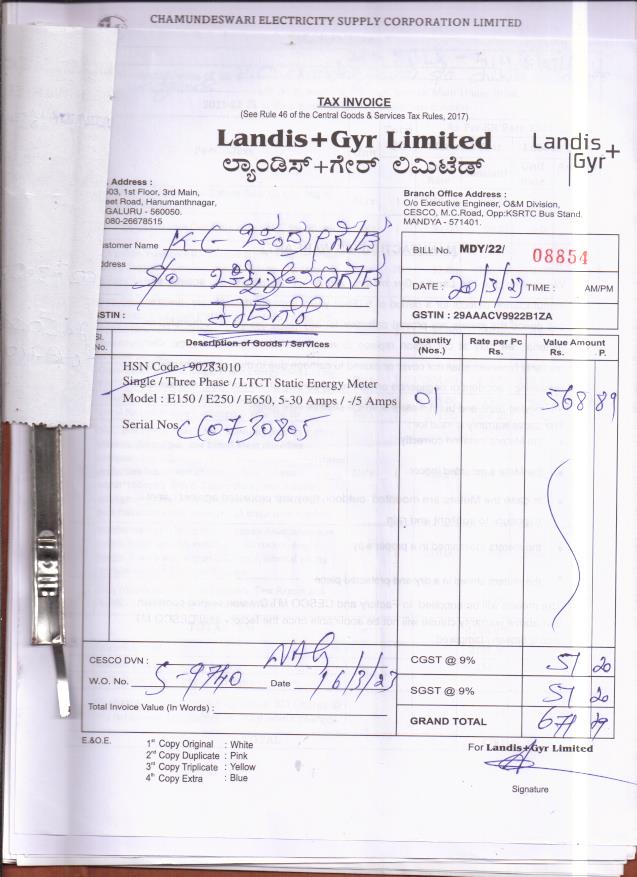 CHAMUNDESWARI ELECTRICITY SUPPLY CORPORATION LIMITED
TAX INVOICE
(See Rule 46 of the Central Goods & Services Tax Rules, 2017)
Landis+Gyr Limited
ಲ್ಯಾಂಡಿಸ್+ಗೇರ್ ಲಿಮಿಟೆಡ್
Landis
Gyr+
Address :
03, 1st Floor, 3rd Main,
eet Road, Hanumanthnagar,
GALURU - 560050.
080-26678515
Branch Office Address :
O/o Executive Engineer, O&M Division,
CESCO, M.C.Road, Opp:KSRTC Bus Stand.
MANDYA - 571401.
ustomer Name K.C. ಚಂದ್ರೇಗೌಡ
ddress S/o
GSTIN :
BILL No. MDY/22/ 08854
DATE : 20/3/23 TIME : AM/PM
GSTIN : 29AAACV9922B1ZA
Sl. No. Description of Goods / Services Quantity (Nos.) Rate per Pc Rs. Value Amount Rs. P.
HSN Code : 90283010
Single / Three Phase / LTCT Static Energy Meter
Model : E150 / E250 / E650, 5-30 Amps / -/5 Amps 01 568 89
Serial Nos CC0730805
CESCO DVN : NAG
W.O. No. S-9740 Date 16/3/23
Total Invoice Value (In Words) :
CGST @ 9% 51 20
SGST @ 9% 51 20
GRAND TOTAL 671 29
E.&O.E.
1st Copy Original : White
2nd Copy Duplicate : Pink
3rd Copy Triplicate : Yellow
4th Copy Extra : Blue
For Landis+Gyr Limited
Signature